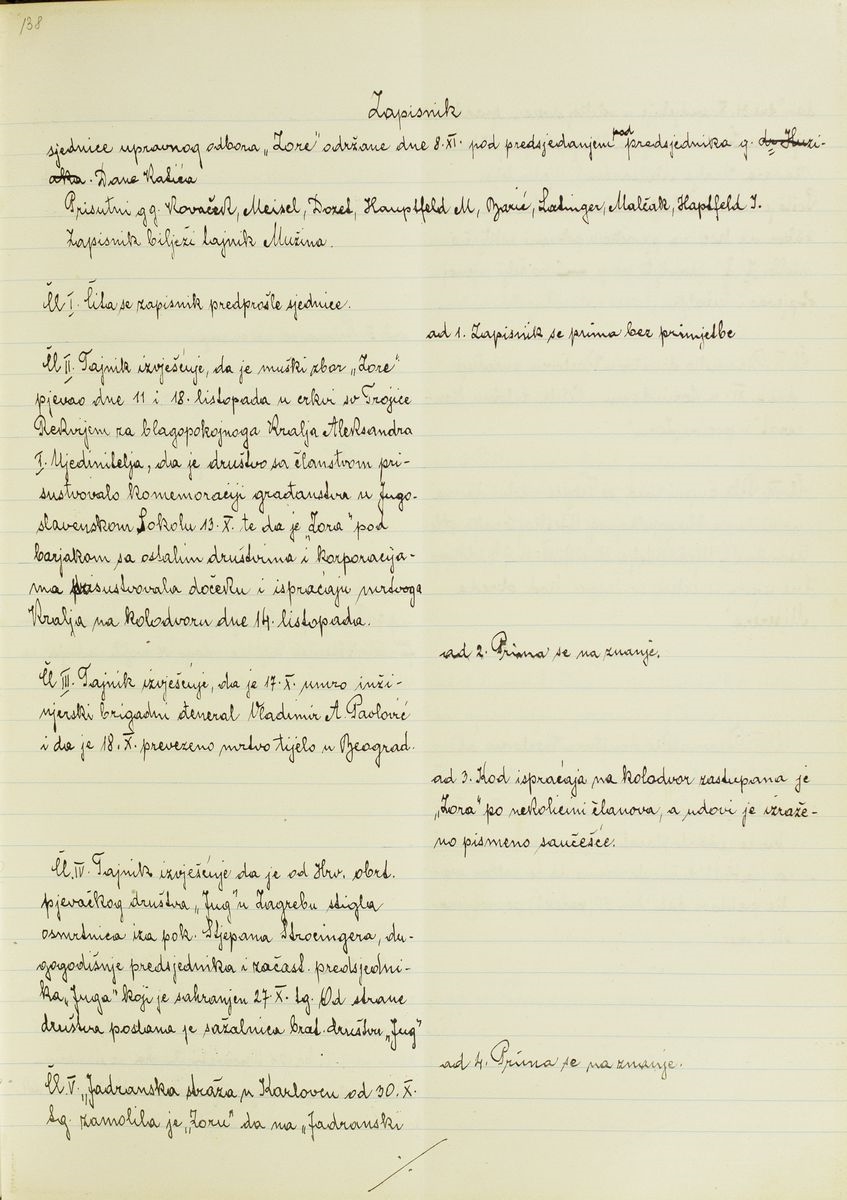 138
Zapisnik
sjednice upravnog odbora „Zore" održane dne 8. XI. pod predsjedanjem podpredsjednika g. dr Huzi-
aka. Dane Katića
Prisutni g.g. Kovaček, Meisel, Dozet, Hauptfeld M, Barić, Latinger, Malčak, Haptfeld I.
Zapisnik bilježi tajnik Mužina.
Čl I. Čita se zapisnik predprošle sjednice.
ad 1. Zapisnik se prima bez primjetbe
Čl II. Tajnik izvješćuje, da je muški zbor „Zore"
pjevao dne 11 i 18. listopada u crkvi sv Trojice
Rekvijem za blagopokojnoga Kralja Aleksandra
I. Ujedinitelja, da je društvo sa članstvom pri-
sustvovalo komemoraciji građanstva u Jugo-
slavenskom Sokolu 13. X. te da je „Zora" pod
barjakom sa ostalim društvima i korporacija-
ma prisustvovala dočeku i ispraćaju mrtvoga
Kralja na kolodvoru dne 14. listopada.
ad 2. Prima se na znanje.
Čl III. Tajnik izvješćuje, da je 17. X. umro inži-
njerski brigadni đeneral Vladimir A. Pavlović
i da je 18. X. prevezeno mrtvo tijelo u Beograd.
ad 3. Kod ispraćaja na kolodvor zastupana je
„Zora" po nekolicini članova, a udovi je izraže-
no pismeno saučešće.
Čl. IV. Tajnik izvješćuje da je od Hrv. obrt.
pjevačkog društva „Jug" u Zagrebu stigla
osmrtnica iza pok. Stjepana Strocingera, du-
gogodišnje predsjednika i začast. predsjedni-
ka „Juga" koji je sahranjen 27. X. tg. Od strane
društva poslana je sažalnica brat. društvu „Jug"
ad 4. Prima se na znanje.
Čl. V. „Jadranska straža u Karlovcu od 30. X.
tg. zamolila je „Zoru" da na „Jadranski
./.